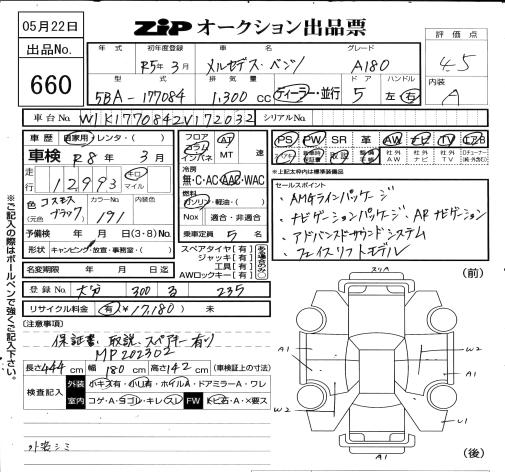 05月22日
ZIP オークション出品票
出品No.
660
評価点
4.5
内装
A
年式 初年度登録 車名 グレード
R5年3月 メルセデス・ベンツ A180
型式 排気量 ドア ハンドル
5BA-177084 1,300 cc ディーラー・並行 5 左・右
車台No. W1K1770842V172032 シリアルNo.
車歴 自家用・レンタ・( )
車検 R8年3月
走行 12993 キロ マイル
色 コスモスブラック (元色) カラーNo. 191 内装色
予備検 年 月 日 (3・8) No.
形状 キャンピング・放置・事務室・( )
名変期限 年 月 日迄
フロア コラム インパネ AT MT 速
冷房 無・C・AC・AAC・WAC
燃料 ガソリン・軽油・( )
Nox 適合・非適合
乗車定員 5 名
スペアタイヤ[有]
ジャッキ[有]
工具[有]
AWロックキー[有]
ある場合のみ○
PS PW SR 革 AW ナビ TV エアB
取説
社外AW 社外ナビ 社外TV
※上記太枠内は標準装備品
セールスポイント
・AMGラインパッケージ
・ナビゲーションパッケージ ARナビゲーション
・アドバンスドサウンドシステム
・フェイスリフトモデル
登録No. 大分 300 る 235
リサイクル料金 有 ¥17,180 未
[注意事項]
保証書、取説、スペアキー有り
MP202302
長さ 444 cm 幅 180 cm 高さ 142 cm (車検証上の寸法)
検査記入
外装 小キズ有・小凹有・ホイルA・ドアミラーA・ワレ
室内 コゲ・A・ヨゴレ・キレ・スレ FW トビ石・A・X要ス
外装シミ
※ご記入の際はボールペンで強くご記入下さい。
スリA
(前)
A1
A1
W2
W2
U1
A1
(後)